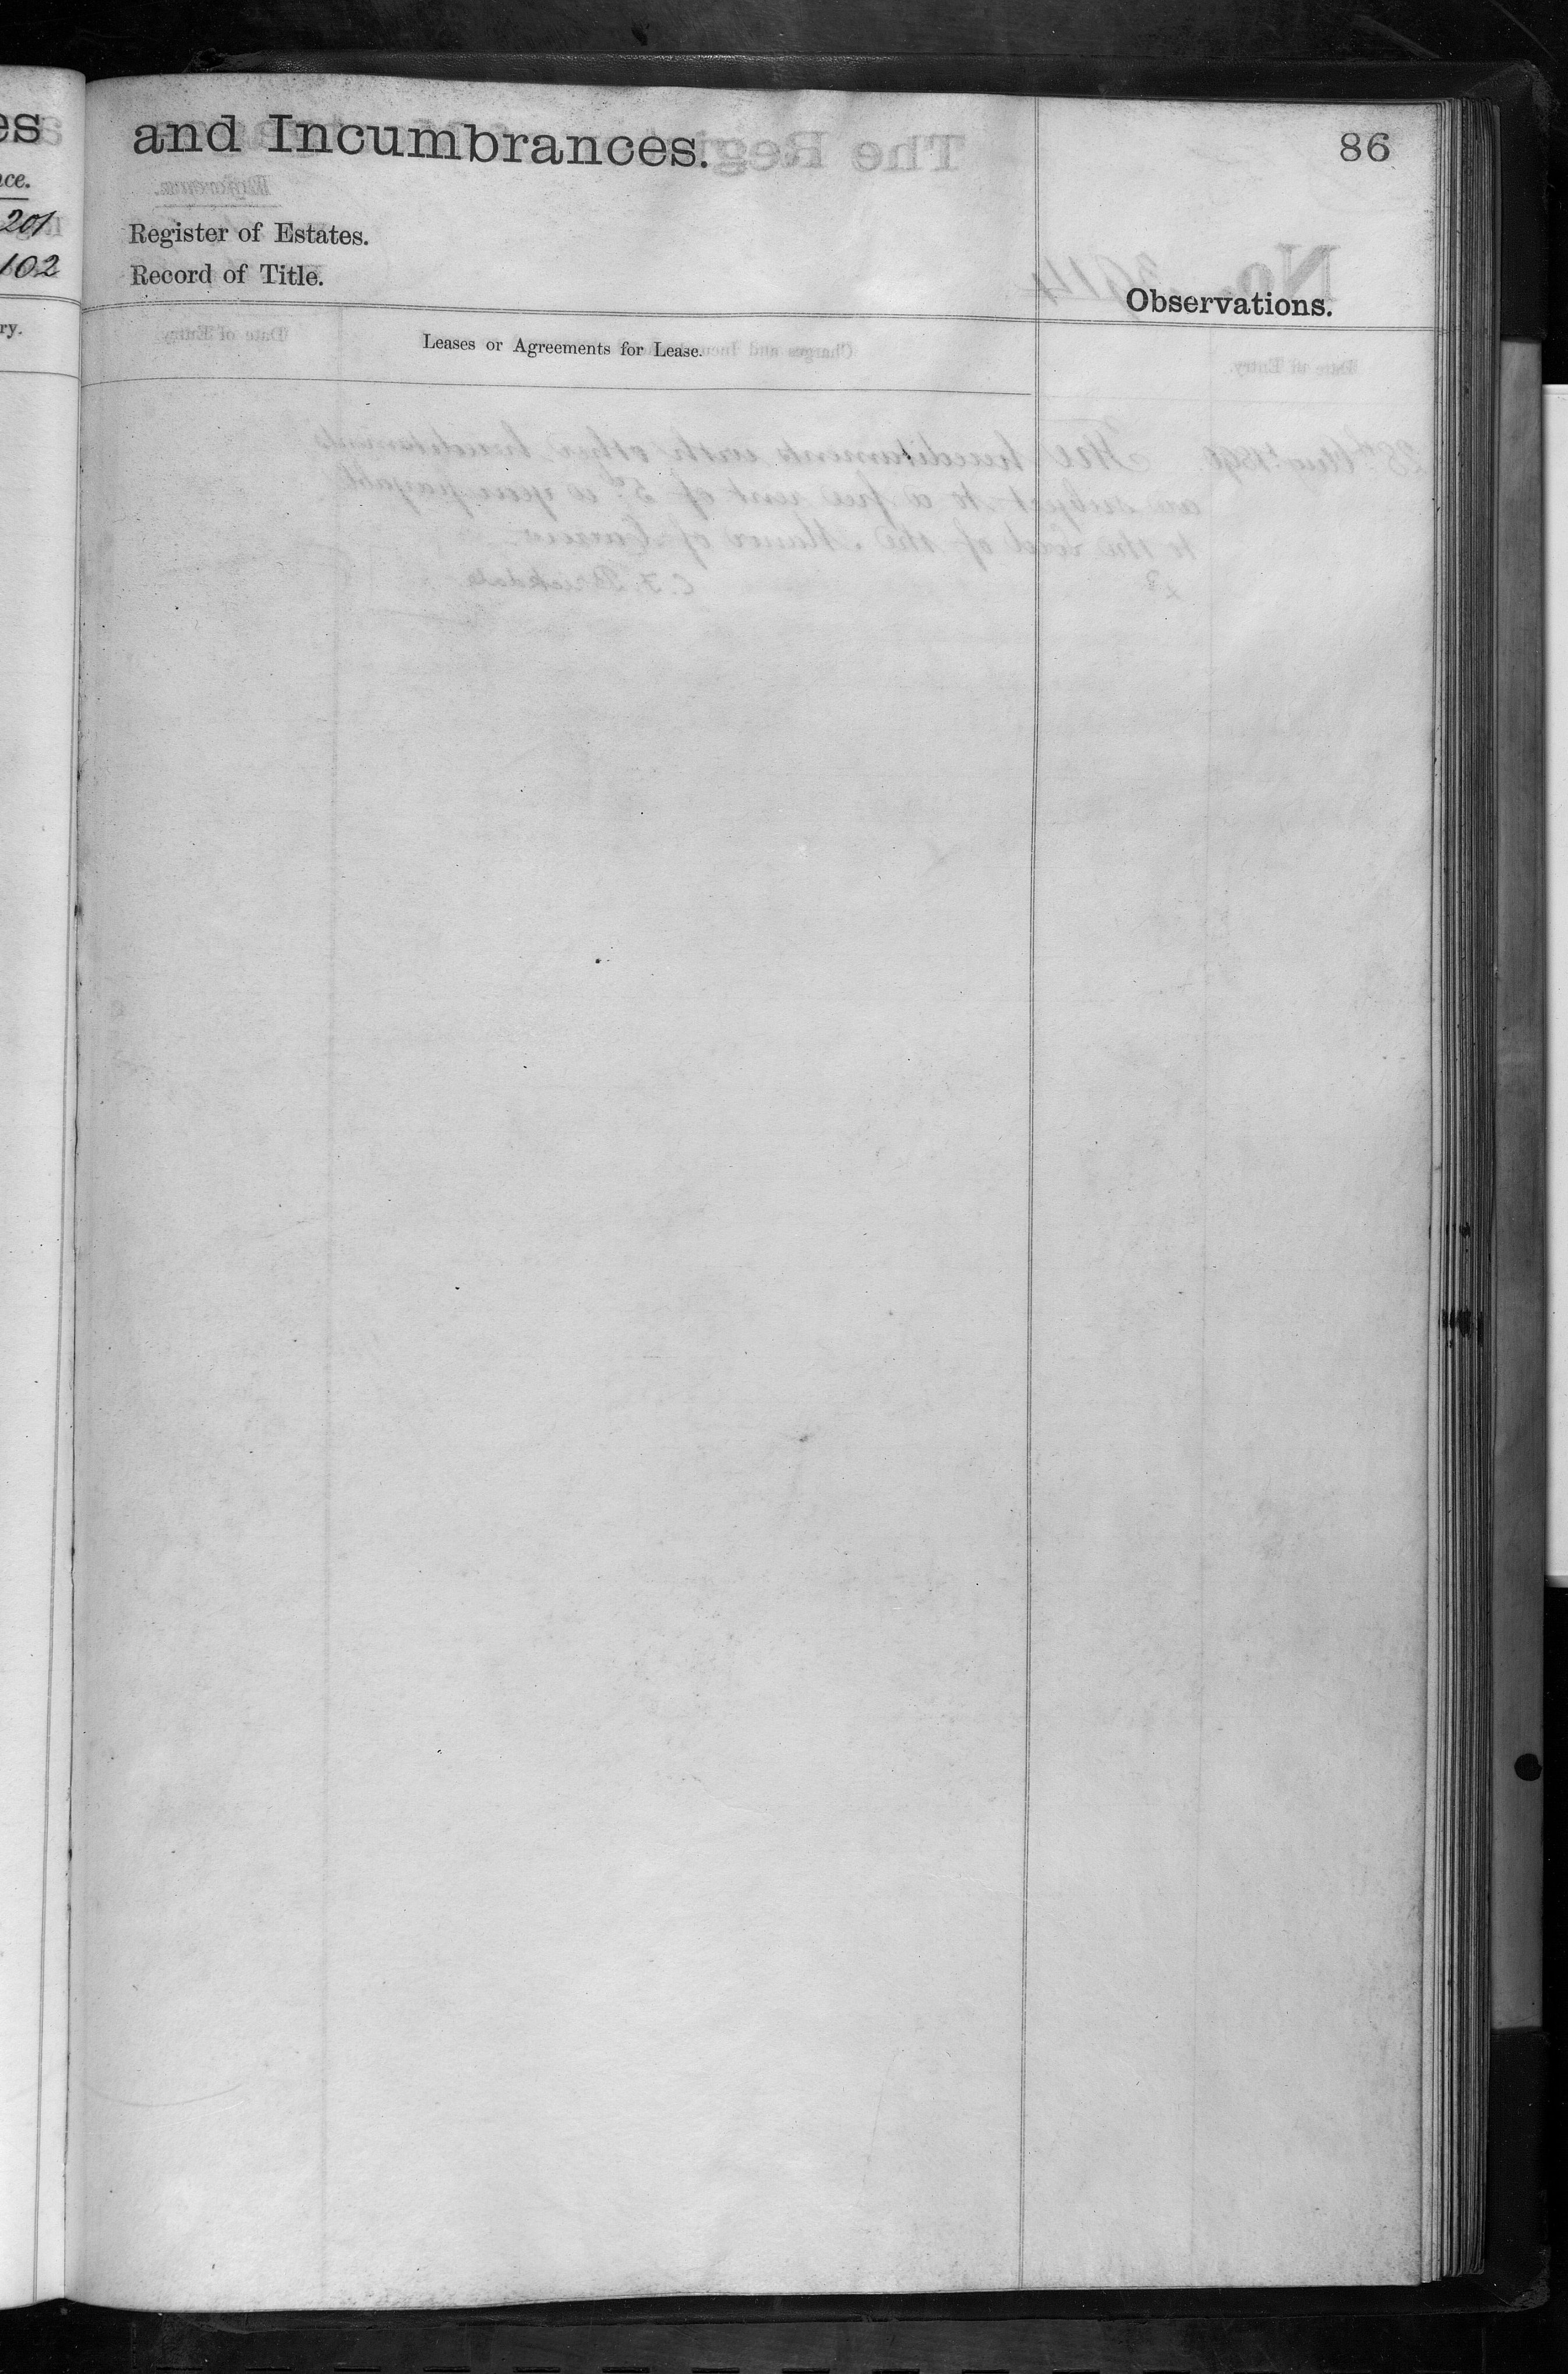 es
and Incumbrances.
86
ce.
201
102
Register of Estates.
Record of Title.
Observations.
ry.
Leases or Agreements for Lease.